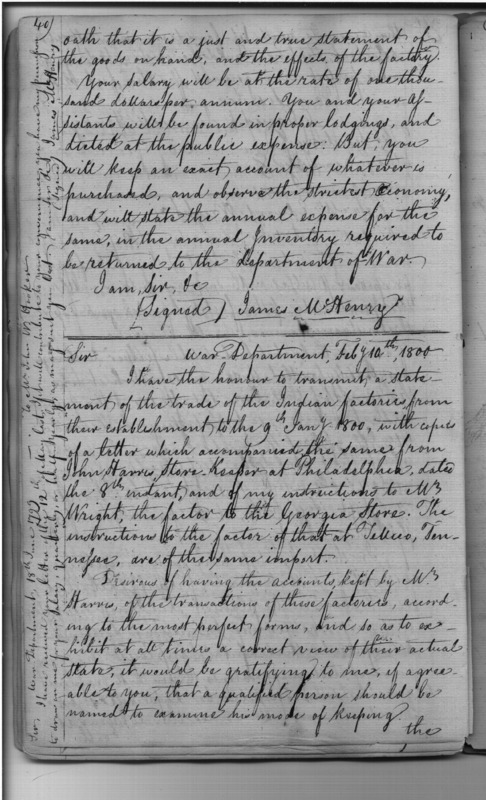 40
oath that it is a just and true statement of
the goods on hand, and the effects of the factory.
Your salary will be at the rate of one thou-
sand dollars per annum. You and your As-
sistants will be found in proper lodgings, and
dieted at the public expense: But, you
will keep an exact account of whatever is
purchased, and observe the strictest Economy,
and will state the annual expense for the
same, in the annual Inventory required to
be returned to the Department of War.
I am, Sir, &c
(Signed) James McHenry
Sir War-Department, Feby 10th, 1800
I have the honour to transmit, a state-
ment of the trade of the Indian factories from
their establishment to the 9th Jany 1800, with copies
of a letter which accompanied the same from
John Harris Store-Keeper at Philadelphia, dated
the 8th instant, and of my instructions to Mr
Wright, the factor to the Georgia Store. The
instructions to the factor of that at Tellico, Ten-
nessee, are of the same import.
Desirous of having the accounts, kept by Mr
Harris, of the transactions of these factories, accord-
ing to the most perfect forms, and so as to ex-
hibit at all times a correct view of their actual
state, it would be gratifying to me, if agree-
able to you, that a qualified person should be
named to examine his mode of keeping
the
Sir, War Department, 18th June 1799